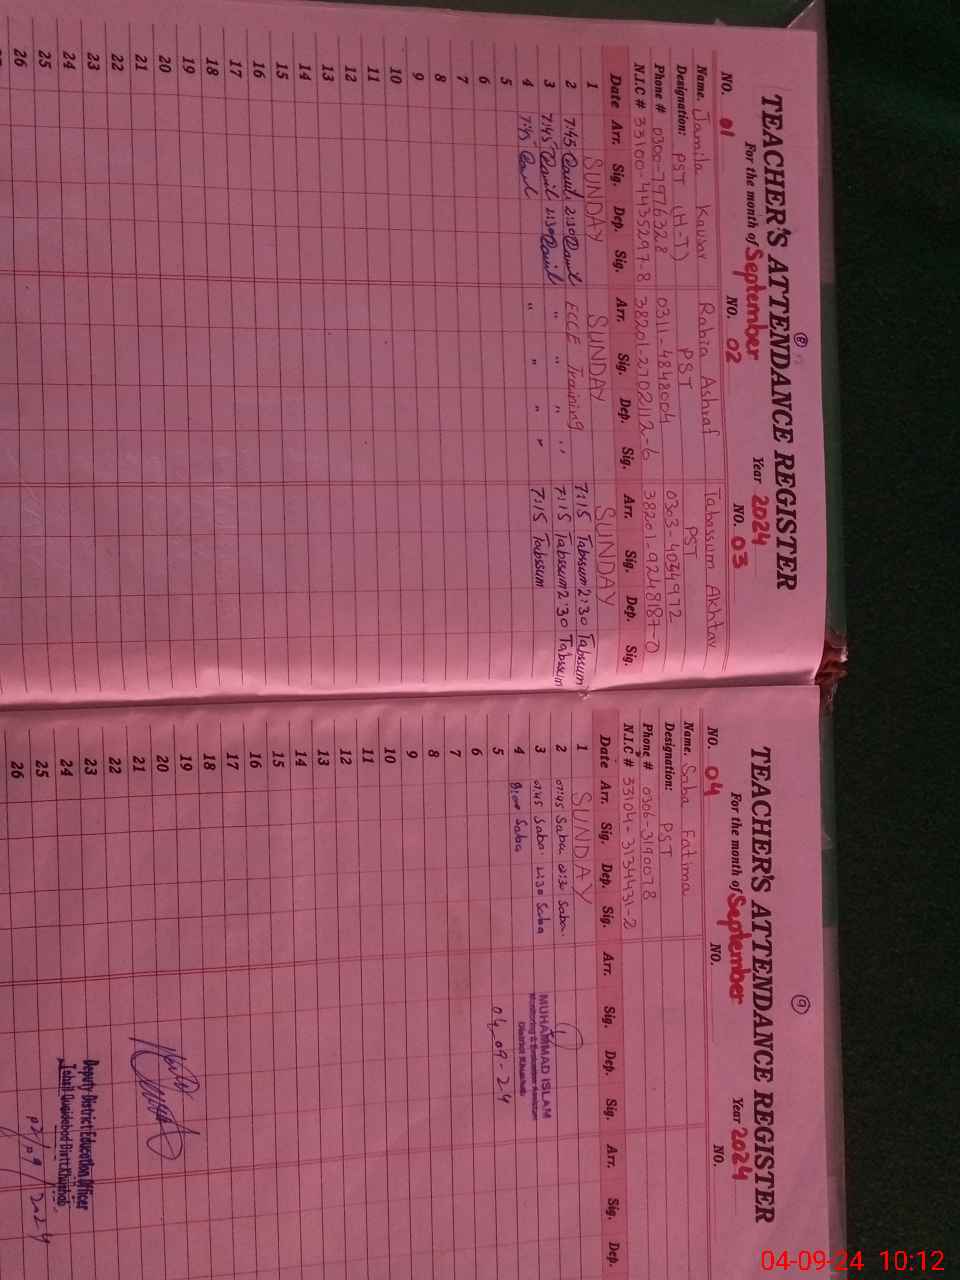 8
TEACHER'S ATTENDANCE REGISTER
For the month of September Year 2024
NO. 01 NO. 02 NO. 03
Name. Jamila Kausar Rabia Ashraf Tabassum Akhtar
Designation: PST (H-T) PST PST
Phone # 0300-7976328 0311-4848004 0303-4034972
N.I.C # 33100-4435297-8 38201-2702112-6 38201-9248187-0
Date Arr. Sig. Dep. Sig. Arr. Sig. Dep. Sig. Arr. Sig. Dep. Sig.
1 SUNDAY SUNDAY SUNDAY
2 7:45 2:30 ECCE Training 7:15 Tabssum 2:30 Tabssum
3 7:45 2:30 " " " " 7:15 Tabssum 2:30 Tabssum
4 7:45 " " " " 7:15 Tabssum
5
6
7
8
9
10
11
12
13
14
15
16
17
18
19
20
21
22
23
24
25
26
9
TEACHER'S ATTENDANCE REGISTER
For the month of September Year 2024
NO. 04 NO. NO.
Name. Saba Fatima
Designation: PST
Phone # 0306-3190078
N.I.C # 33104-3134431-2
Date Arr. Sig. Dep. Sig. Arr. Sig. Dep. Sig. Arr. Sig. Dep.
1 SUNDAY
2 07:45 Saba. 02:30 Saba.
3 07:45 Saba. 2:30 Saba
4 8:00 Saba
MUHAMMAD ISLAM
Monitoring & Evaluation Assistant
District Khushab
5 04-09-24
6
7
8
9
10
11
12
13
14
15
16
17
18
19
20
21
22
23
24
25
26
Deputy District Education Officer
Tehsil Quaidabad Distt. Khushab
02/09/2024
04-09-24 10:12